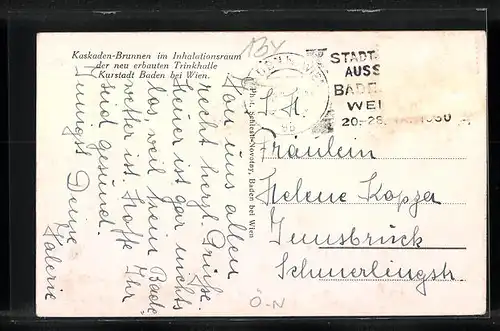 Kaskaden-Brunnen im Inhalationsraum
der neu erbauten Trinkhalle
Kurstadt Baden bei Wien.
Von uns allen
recht herzl. Grüße.
Heuer ist gar nichts
los weil kein Bade
wetter ist. Hoffe Ihr
seid gesund.
Deine
Valerie
Baden bei Wien
STADT
AUSS
BADE
WEI
20.-28. 1930
Fräulein
Helene
Innsbruck
Schmerlingstr.
Ö-N